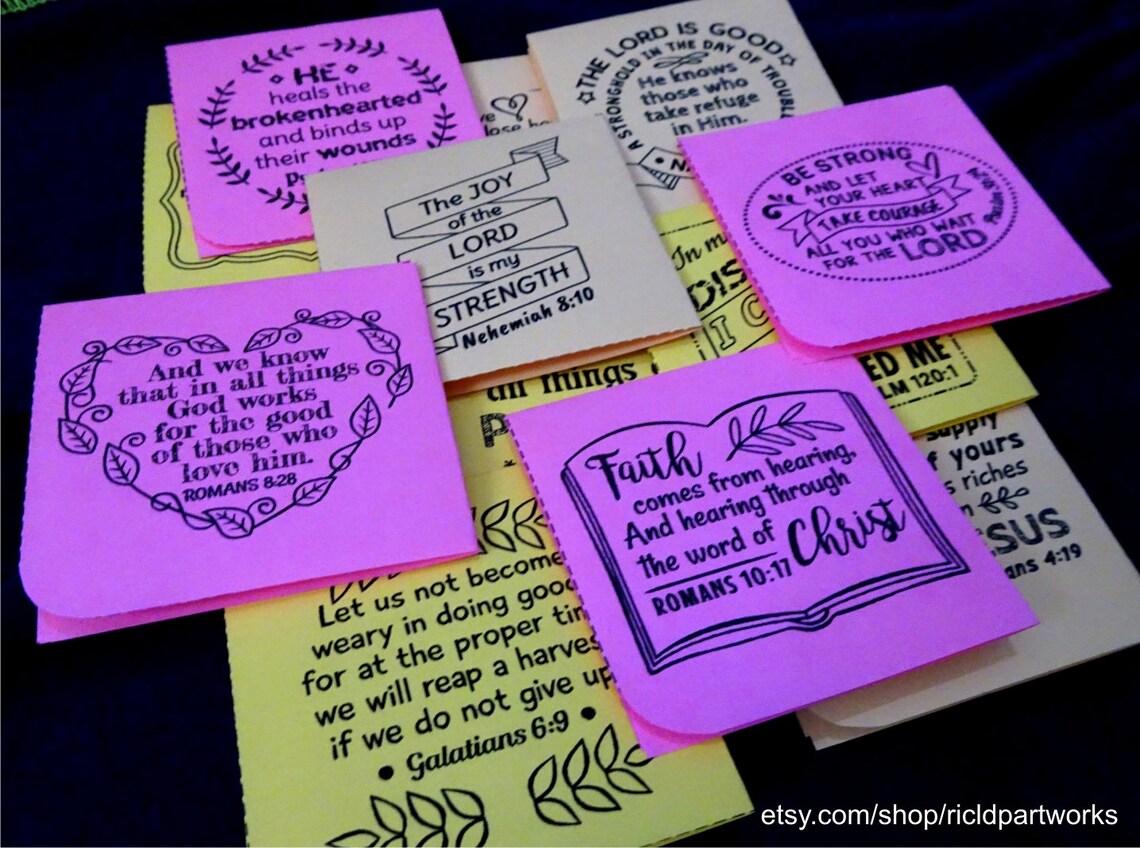 HE
heals the
brokenhearted
and binds up
their wounds
THE LORD IS GOOD
A STRONGHOLD IN THE DAY OF TROUBL
He knows
those who
take refuge
in Him.
The JOY
of the
LORD
is my
STRENGTH
Nehemiah 8:10
BE STRONG
AND LET
YOUR HEART
TAKE COURAGE
ALL YOU WHO WAIT
FOR THE LORD
In m
DIS
I C
ED ME
LM 120:1
And we know
that in all things
God works
for the good
of those who
love him.
ROMANS 8:28
all things
Faith
comes from hearing,
And hearing through
the word of Christ
ROMANS 10:17
supply
f yours
s riches
SUS
ans 4:19
Let us not become
weary in doing good
for at the proper tim
we will reap a harves
if we do not give up
• Galatians 6:9 •
etsy.com/shop/ricldpartworks